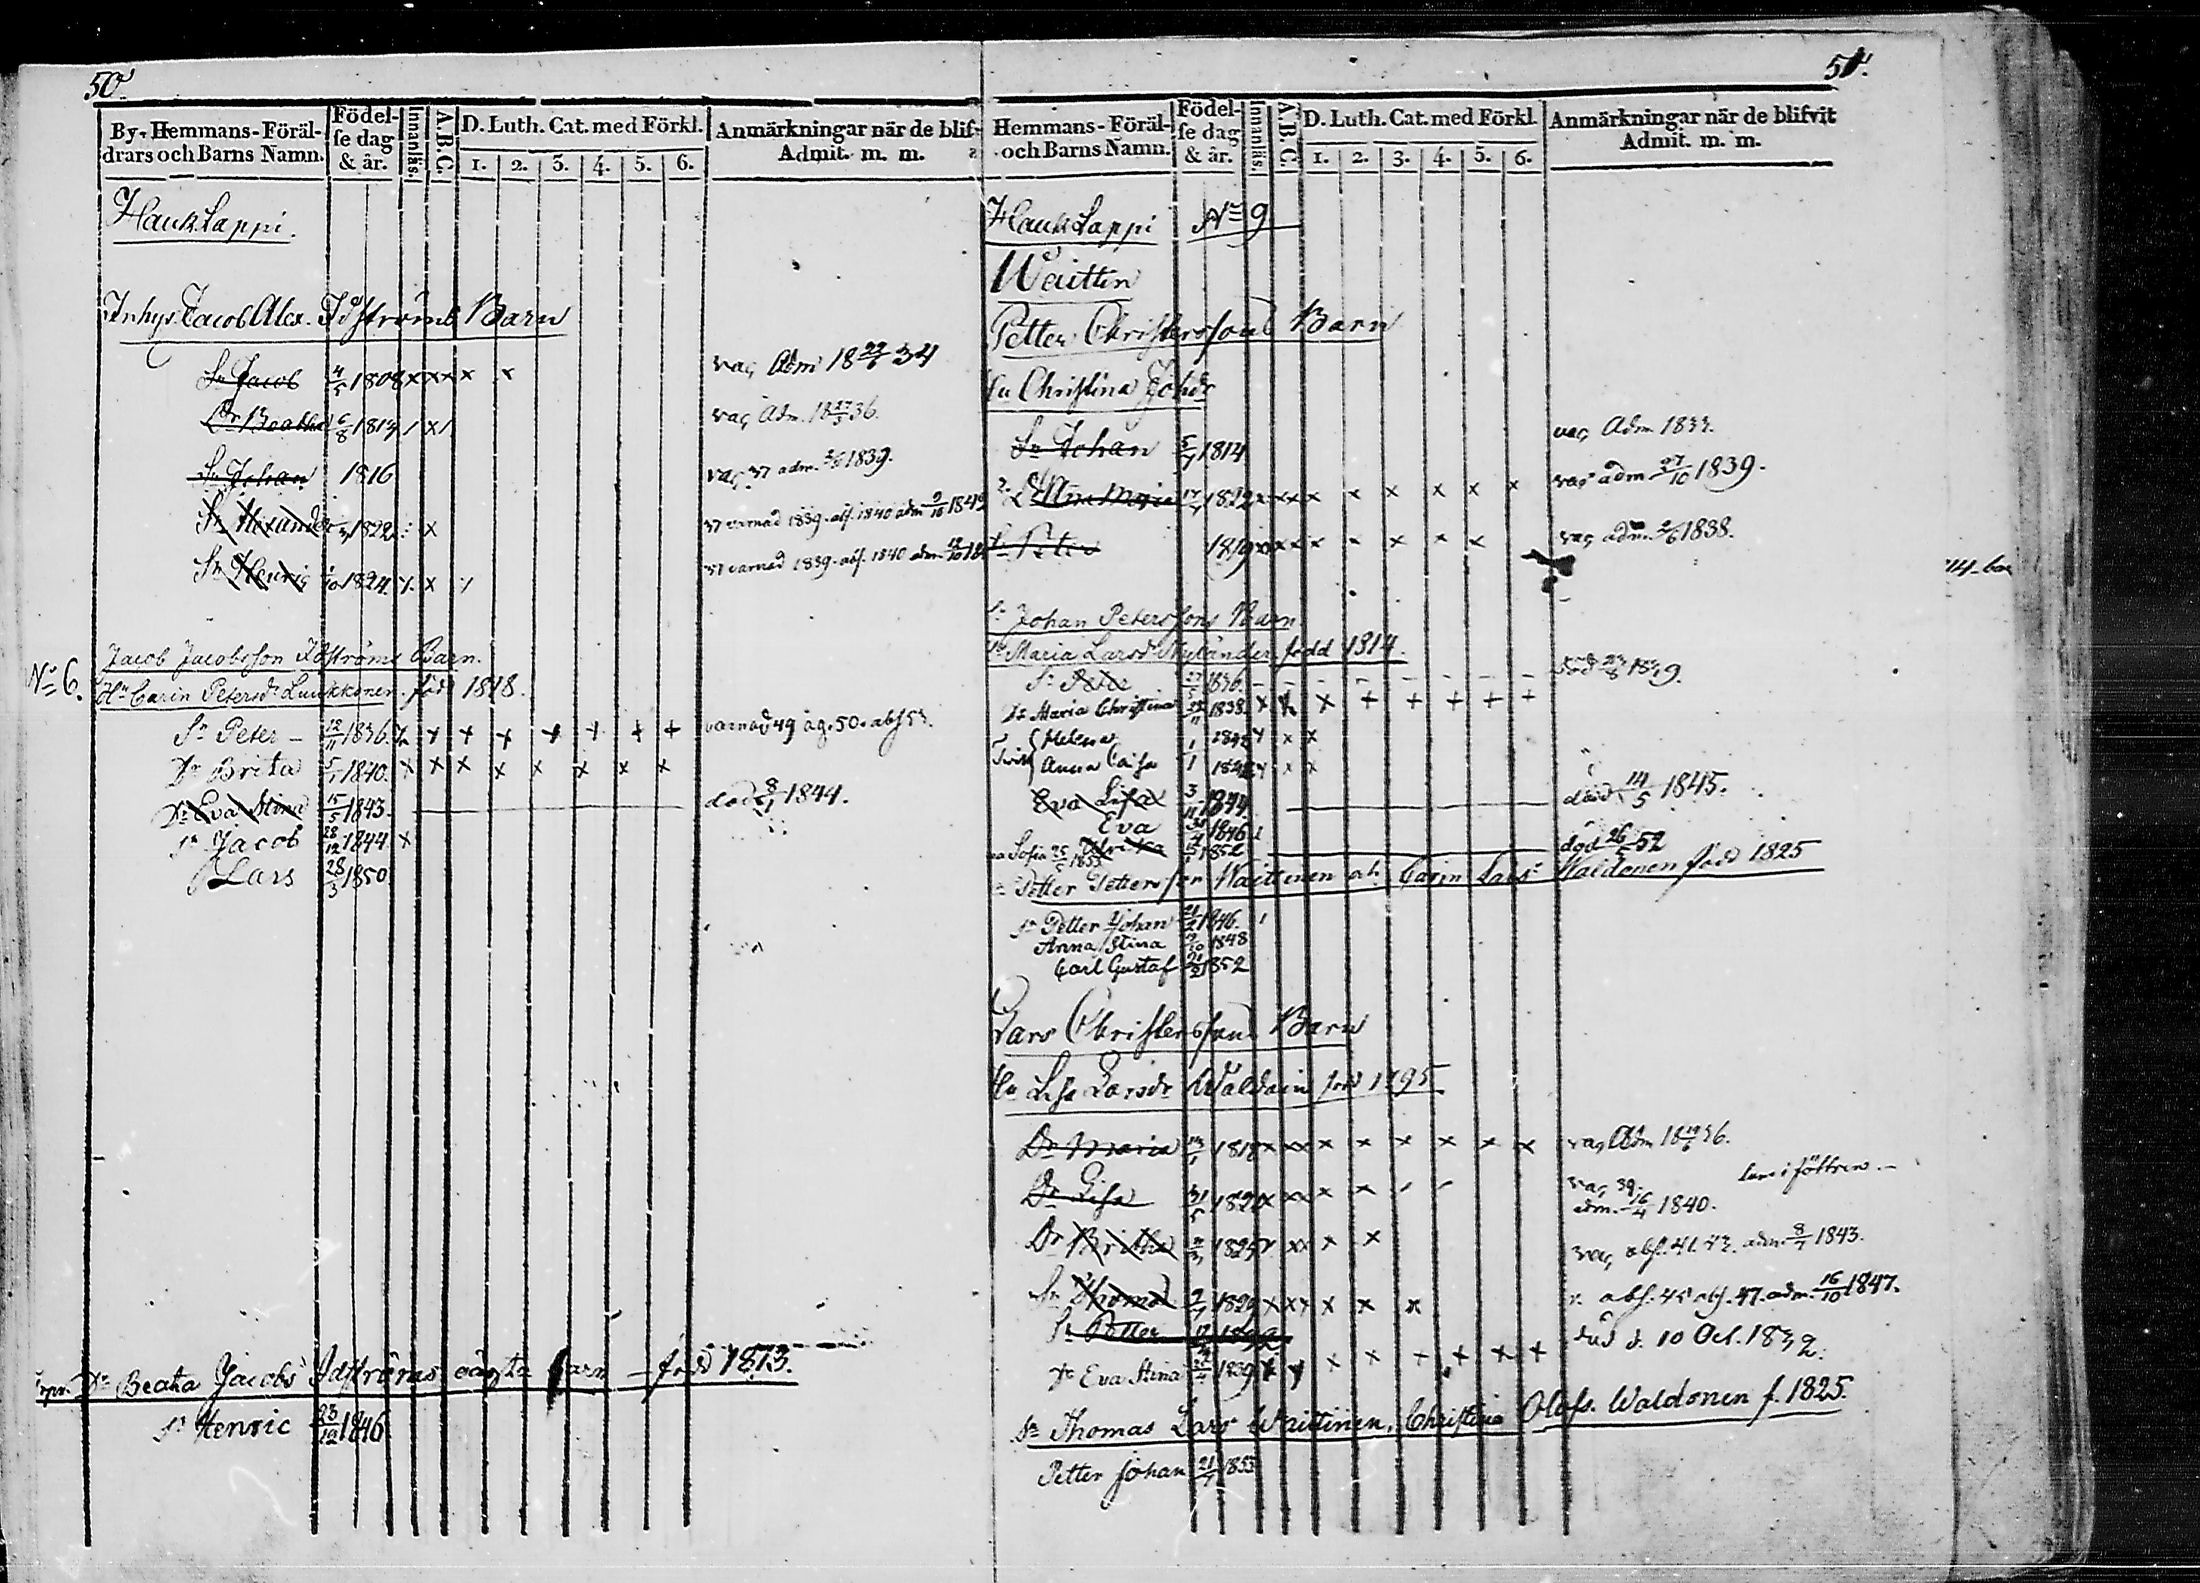 50.
By-Hemmans-Föräl-
drars och Barns Namn.
Födel-
se dag
& år.
Innanläs.
A.B.C.
D. Luth. Cat. med Förkl.
1. 2. 3. 4. 5. 6.
Anmärkningar när de blif-
Admit. m. m.
Hauklappi.
Inhys. Jacob Alex. Idströms Barn
Sn Jacob 4/5 1808 x x x x x vac. Adm 18 22/6 34
Dr Beatha 6/8 1813 / x / vac. Adm. 18 36.
Sn Johan 1816 vac. 37 adm. 1839.
Sn Alexander 1822 x 37 varnad 1839. abs. 1840 adm. 9/10 1842
Sn Henric 1824 x 37 varnad 1839. abs. 1840 adm.
Jacob Jacobsson Idströms Barn.
No 6. Hu Carin Petersdr Luukkonen. född 1818.
Sn Peter 12/11 1836. x x x x x x x x varnad 49 ag. 50. abs 53.
Dr Brita 5/1 1840. x x x x x x x x
Dr Eva Stina 15/5 1843. död 8/1 1844.
Sn Jacob 28/12 1844. x
Lars 28/3 1850
Dr Beata Jacobs Idströms oägta barn född 1813.
Sn Henric 23/12 1846
51.
Hemmans-Föräl-
och Barns Namn.
Födel-
se dag
& år.
Innanläs.
A.B.C.
D. Luth. Cat. med Förkl.
1. 2. 3. 4. 5. 6.
Anmärkningar när de blifvit
Admit. m. m.
Hauklappi No 9
Waittin
Petter Christerssons Barn
Hu Christina Johdr
Sn Johan 5/7 1814 vac. Adm 1833.
Dr Anna Maria 17/7 1822 x x x x x x x x x vac adm. 27/10 1839.
Sn Peter 1819 x x x x x x x x vac adm. 1838.
Sn Johan Peterssons Barn
Hu Maria Larsdr Nyländer. född 1814.
Sn Peter 27/5 1836. död
Dr Maria Christina 1838. x x x + + + + +
Helena 1842 x x x
Tvill. Anna Caisa 1/1 1842 x x x
Eva Lisa 3/11 1844. död 14/5 1845.
Eva 1846
Ulrika 1852 död 26/5 52
Sofia 25/5 1853
Sn Petter Petterson Waittinen o h. Carin Lars. Waldonen född 1825
Sn Petter Johan 21/2 1846.
Anna Stina 1848
Carl Gustaf 1852
Lars Christerssons Barn
Hu Lisa Larsdr Waldain född 1795
Dr Maria 1818 x x x x x x x x x vac. Adm 18 36.
Dr Lisa 31/5 1820 x x x x x vac. 39.
lam i fötteren.
adm. 16/4 1840.
Dr Britha 1825 x x x x vac abs. 41. 43. adm. 8/7 1843.
Sn Thomas 2/7 1829 x x x x x x abs. 45 abs. 47. adm. 16/10 1847.
Sn Petter 1832 död d. 10 Oct. 1832.
Dr Eva Stina 1839 x x x x + + x +
Sn Thomas Lars Waittinen. Christina Olofs. Waldonen f. 1825.
Petter Johan 21/7 1853